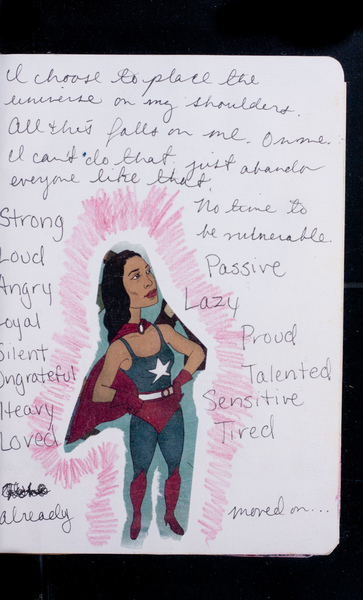 I choose to place the
universe on my shoulders.
All this falls on me. On me.
I can't do that just abandon
everyone like that.
No time to
be vulnerable.
Strong
Loud
Angry
Loyal
Silent
Ungrateful
Heavy
Loved
Passive
Lazy
Proud
Talented
Sensitive
Tired
already
moved on...